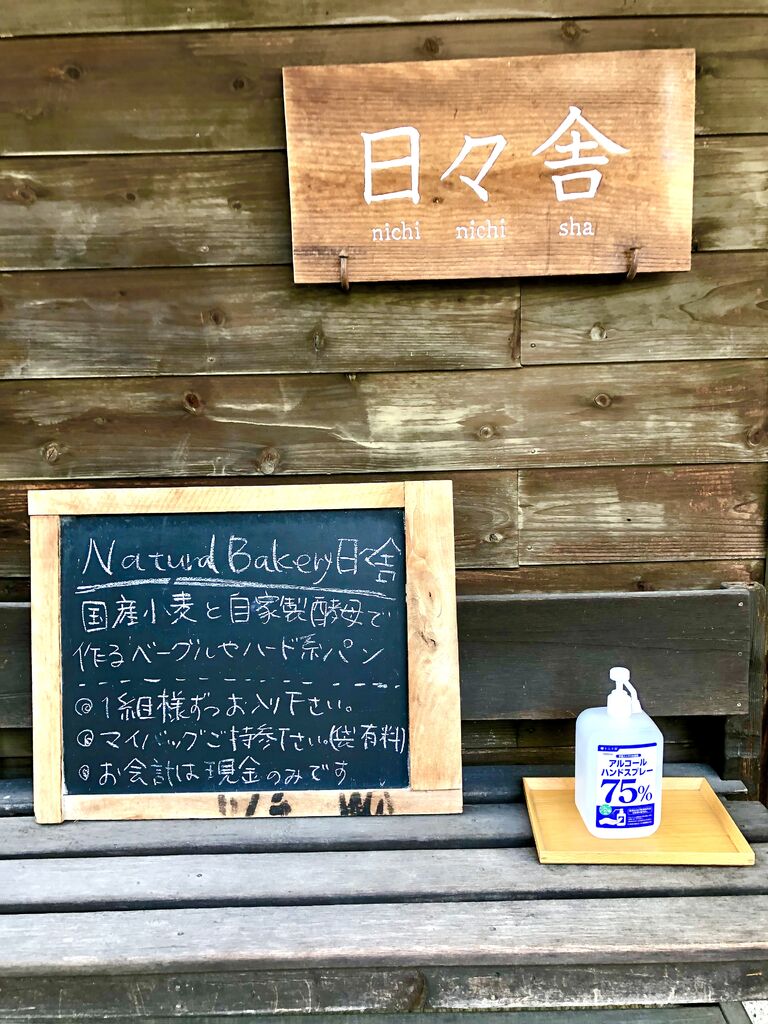 日々舎
nichi nichi sha
Natural Bakery日々舎
国産小麦と自家製酵母で
作るベーグルやハード系パン
◎1組様ずつお入り下さい。
◎マイバッグご持参下さい。(袋有料)
◎お会計は現金のみです
アルコール
ハンドスプレー
75%